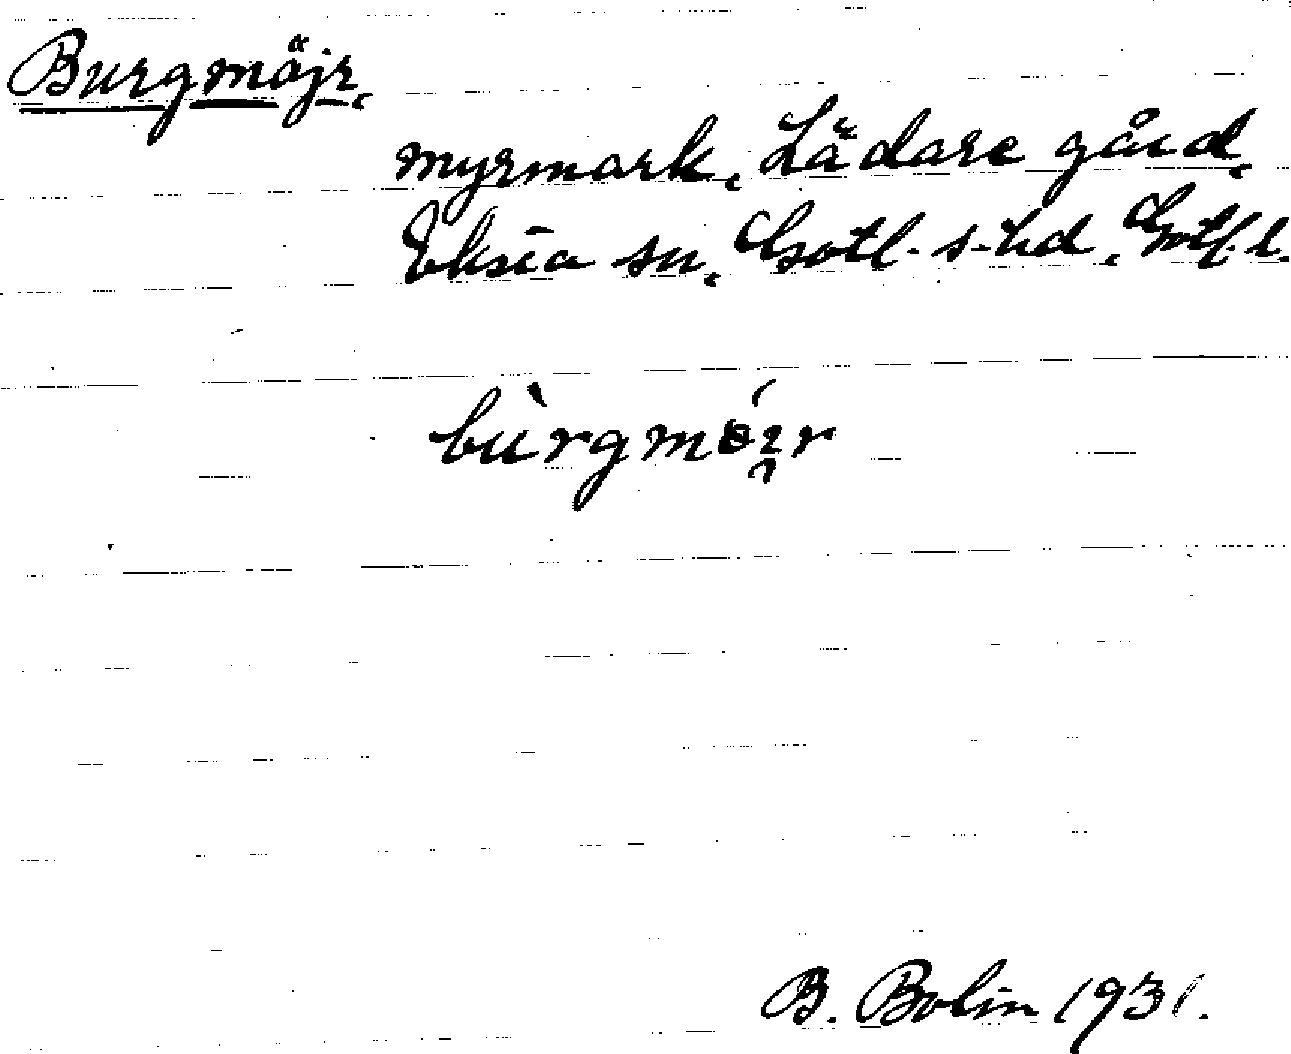 Burgmöjr.
myrmark, Lädare gård,
Eksta sn, Gotl. s. hd, Gotl. l.
bùrgmɵ́ır
B. Bolin 1931.